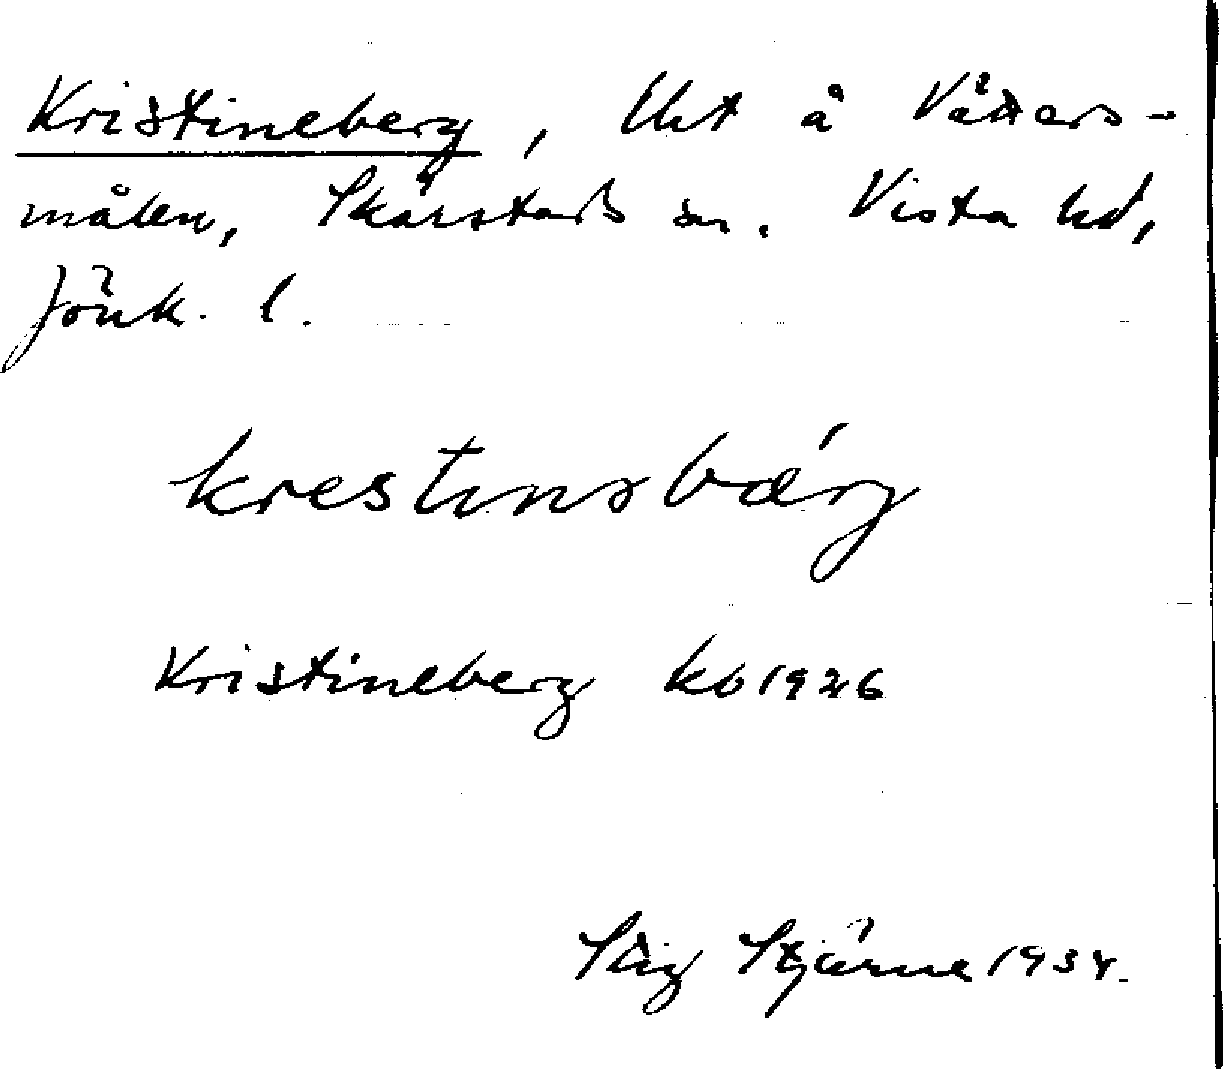 Kristineberg, lht å Vätters-
målen, Skärstads sn. Vista hd,
Jönk. l.
krestinəbærg
Kristineberg kb 1926
Stig Stjärne 1934.